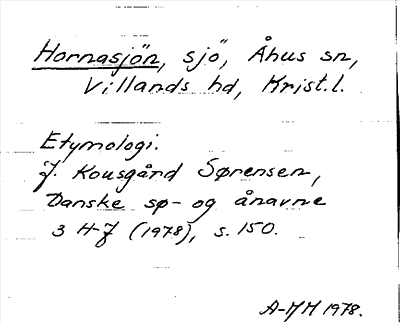 Hornasjön, sjö, Åhus sn,
Villands hd, Krist.l.
Etymologi.
J. Kousgård Sørensen,
Danske sø- og ånavne
3 H-J (1978), s. 150.
A-MM 1978.